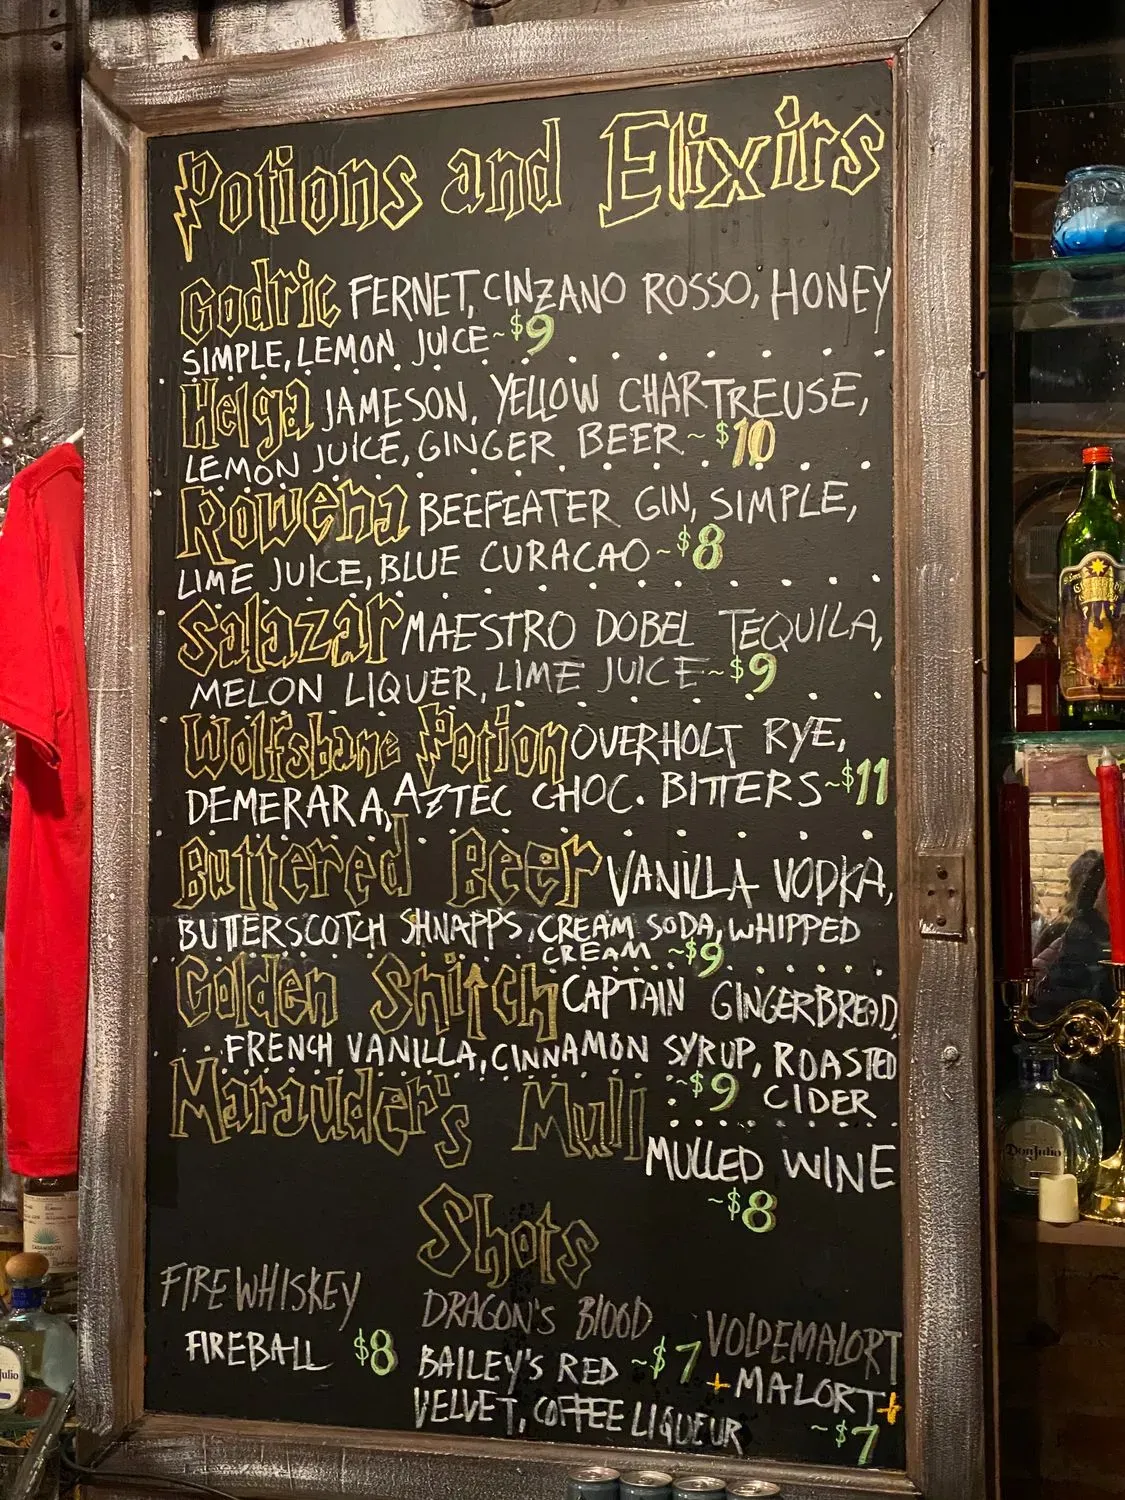 Potions and Elixirs
Godric FERNET, CINZANO ROSSO, HONEY
SIMPLE, LEMON JUICE ~$9
Helga JAMESON, YELLOW CHARTREUSE,
LEMON JUICE, GINGER BEER ~ $10
Rowena BEEFEATER GIN, SIMPLE,
LIME JUICE, BLUE CURACAO ~ $8
Salazar MAESTRO DOBEL TEQUILA,
MELON LIQUER, LIME JUICE ~ $9
Wolfsbane Potion OVERHOLT RYE,
DEMERARA, AZTEC CHOC. BITTERS ~$11
Buttered Beer VANILLA VODKA,
BUTTERSCOTCH SHNAPPS, CREAM SODA, WHIPPED
CREAM ~$9
Golden Snitch CAPTAIN GINGERBREAD,
FRENCH VANILLA, CINNAMON SYRUP, ROASTED
~$9 CIDER
Marauder's Mull
MULLED WINE
~$8
Shots
FIREWHISKEY
FIREBALL $8
DRAGON'S BLOOD
BAILEY'S RED ~$7
VELVET, COFFEE LIQUEUR
VOLDEMALORT
+MALORT+
~$7
Don Julio
Julio